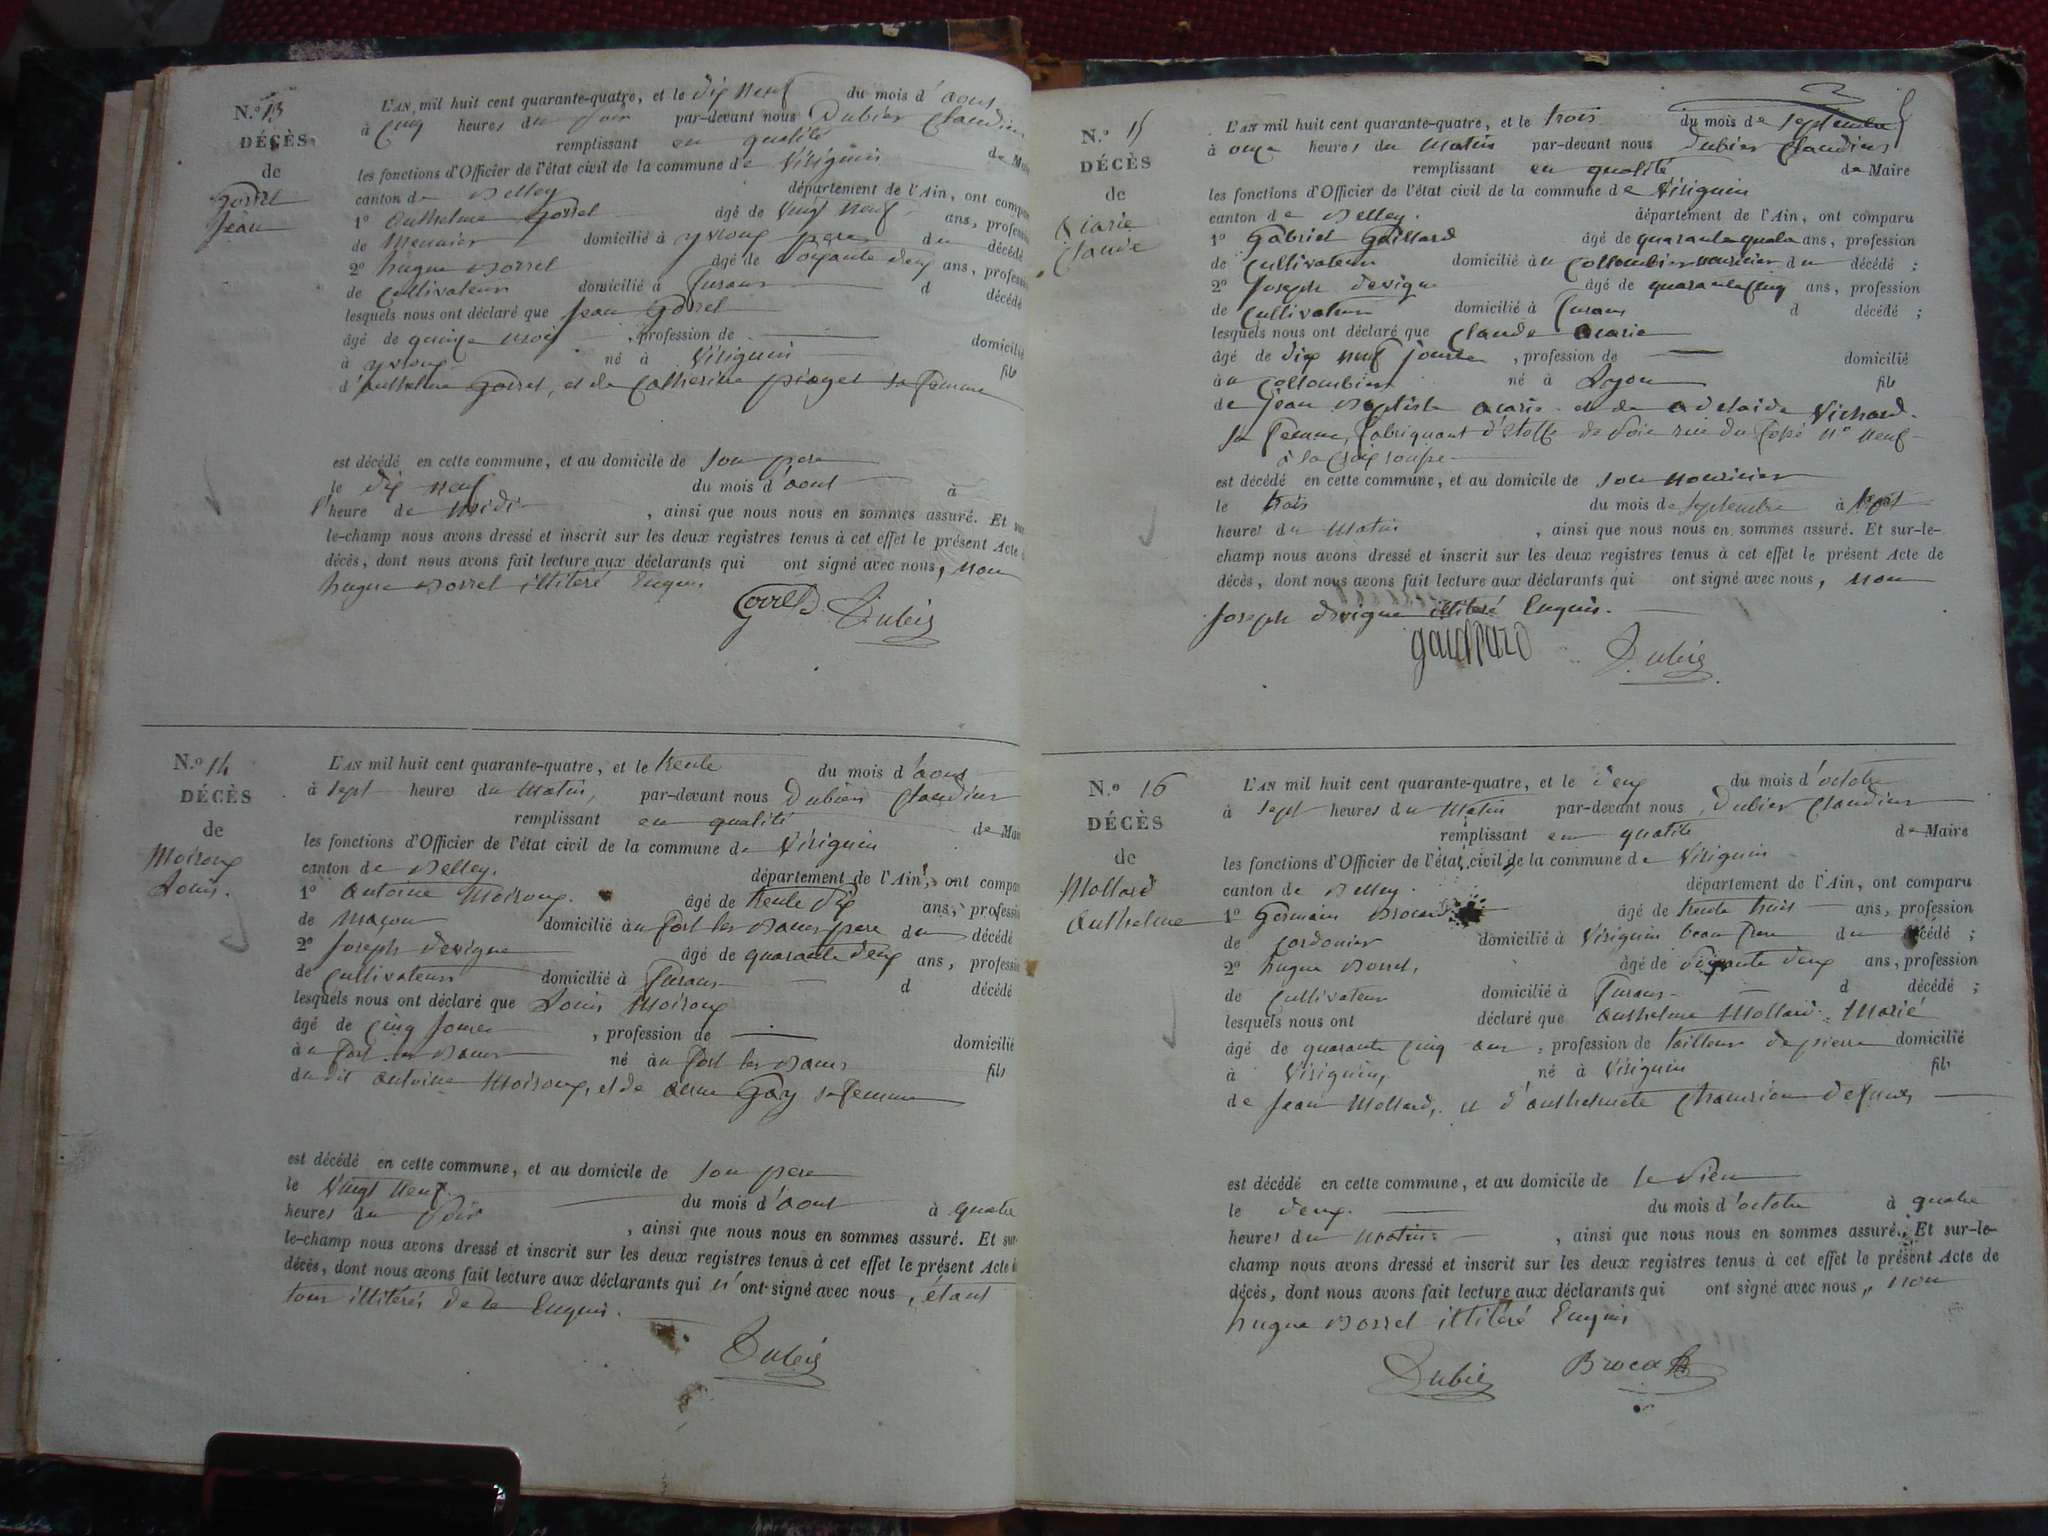 N.º 13
DÉCÈS
de
Gorrel
Jean
L'AN mil huit cent quarante-quatre, et le dix neuf du mois d'aout
à cinq heures du soir par-devant nous Dubier Claudius
remplissant en qualité de Maire
les fonctions d'Officier de l'état civil de la commune de Virignin
canton de Belley département de l'Ain, ont comparu
1º Anthelme Gorrel âgé de vingt neuf ans, profession
de Meunier domicilié à père du décédé
2º hugue Borrel âgé de soixante deux ans, profession
de Cultivateur domicilié à d décédé
lesquels nous ont déclaré que Jean Gorrel
âgé de quinze mois, profession de domicilié
à né à Virignin fils
d'anthelme Gorrel, et de Catherine sa femme
est décédé en cette commune, et au domicile de son pere
le dix neuf du mois d'aout à
l'heure de midi, ainsi que nous nous en sommes assuré. Et sur
le-champ nous avons dressé et inscrit sur les deux registres tenus à cet effet le présent Acte
décès, dont nous avons fait lecture aux déclarants qui ont signé avec nous, non
hugue Borrel illiteré Enquis.
Gorrel Dubier
N.º 14
DÉCÈS
de
Moiroux
Louis.
L'AN mil huit cent quarante-quatre, et le trente du mois d'aout
à sept heures du matin, par-devant nous Dubier Claudius
remplissant en qualité de Maire
les fonctions d'Officier de l'état civil de la commune de Virignin
canton de Belley. département de l'Ain, ont comparu
1º Antoine Moiroux. âgé de trente six ans, profession
de maçon domicilié au fort les Bans pere du décédé
2º Joseph devigne âgé de quarante deux ans, profession
de cultivateur domicilié à d décédé
lesquels nous ont déclaré que Louis Moiroux
âgé de cinq jours, profession de domicilié
au fort les Bans né au fort les Bans fils
du dit antoine Moiroux, et de anne Gay sa femme
est décédé en cette commune, et au domicile de son pere
le vingt neuf du mois d'aout à quatre
heures du soir, ainsi que nous nous en sommes assuré. Et sur
le-champ nous avons dressé et inscrit sur les deux registres tenus à cet effet le présent Acte
décès, dont nous avons fait lecture aux déclarants qui n'ont signé avec nous, étant
tous illiterés de ce Enquis.
Dubier
N.º 15
DÉCÈS
de
Claude
L'AN mil huit cent quarante-quatre, et le trois du mois de septembre
à onze heures du matin par-devant nous Dubier Claudius
remplissant en qualité de Maire
les fonctions d'Officier de l'état civil de la commune de Virignin
canton de Belley. département de l'Ain, ont comparu
1º Gabriel Gaillard âgé de quarante quatre ans, profession
de cultivateur domicilié au Collombier nouricier du décédé ;
2º Joseph devigne âgé de quarante cinq ans, profession
de cultivateur domicilié à d décédé ;
lesquels nous ont déclaré que Claude
âgé de dix neuf jours, profession de domicilié
au Collombier né à Lyon fils
de jean Baptiste et de adelaide Vichard.
sa femme, fabriquant d'étoffe de soie rue du N° neuf
à la Croix rousse
est décédé en cette commune, et au domicile de son nouricier
le trois du mois de septembre à sept
heures du matin, ainsi que nous nous en sommes assuré. Et sur-le-
champ nous avons dressé et inscrit sur les deux registres tenus à cet effet le présent Acte de
décès, dont nous avons fait lecture aux déclarants qui ont signé avec nous, non
Joseph devigne illiteré Enquis.
Dubier
N.º 16
DÉCÈS
de
Mollard
Anthelme
L'AN mil huit cent quarante-quatre, et le deux du mois d'octobre
à sept heures du matin par-devant nous, Dubier Claudius
remplissant en qualité de Maire
les fonctions d'Officier de l'état civil de la commune de Virignin
canton de Belley. département de l'Ain, ont comparu
1º Germain Brocard âgé de trente trois ans, profession
de cordonier domicilié à Virignin beau frere du décédé ;
2º hugue Borrel, âgé de soixante deux ans, profession
de cultivateur domicilié à d décédé ;
lesquels nous ont déclaré que Anthelme Mollard. Marié
âgé de quarante cinq ans, profession de tailleur de pierre domicilié
à Virignin, né à Virignin fils
de Jean Mollard, et d'anthelmete defunts
est décédé en cette commune, et au domicile de le sien
le deux. du mois d'octobre à quatre
heures du matin, ainsi que nous nous en sommes assuré. Et sur-le-
champ nous avons dressé et inscrit sur les deux registres tenus à cet effet le présent Acte de
décès, dont nous avons fait lecture aux déclarants qui ont signé avec nous, non
hugue Borrel illiteré Enquis
Dubier Brocard